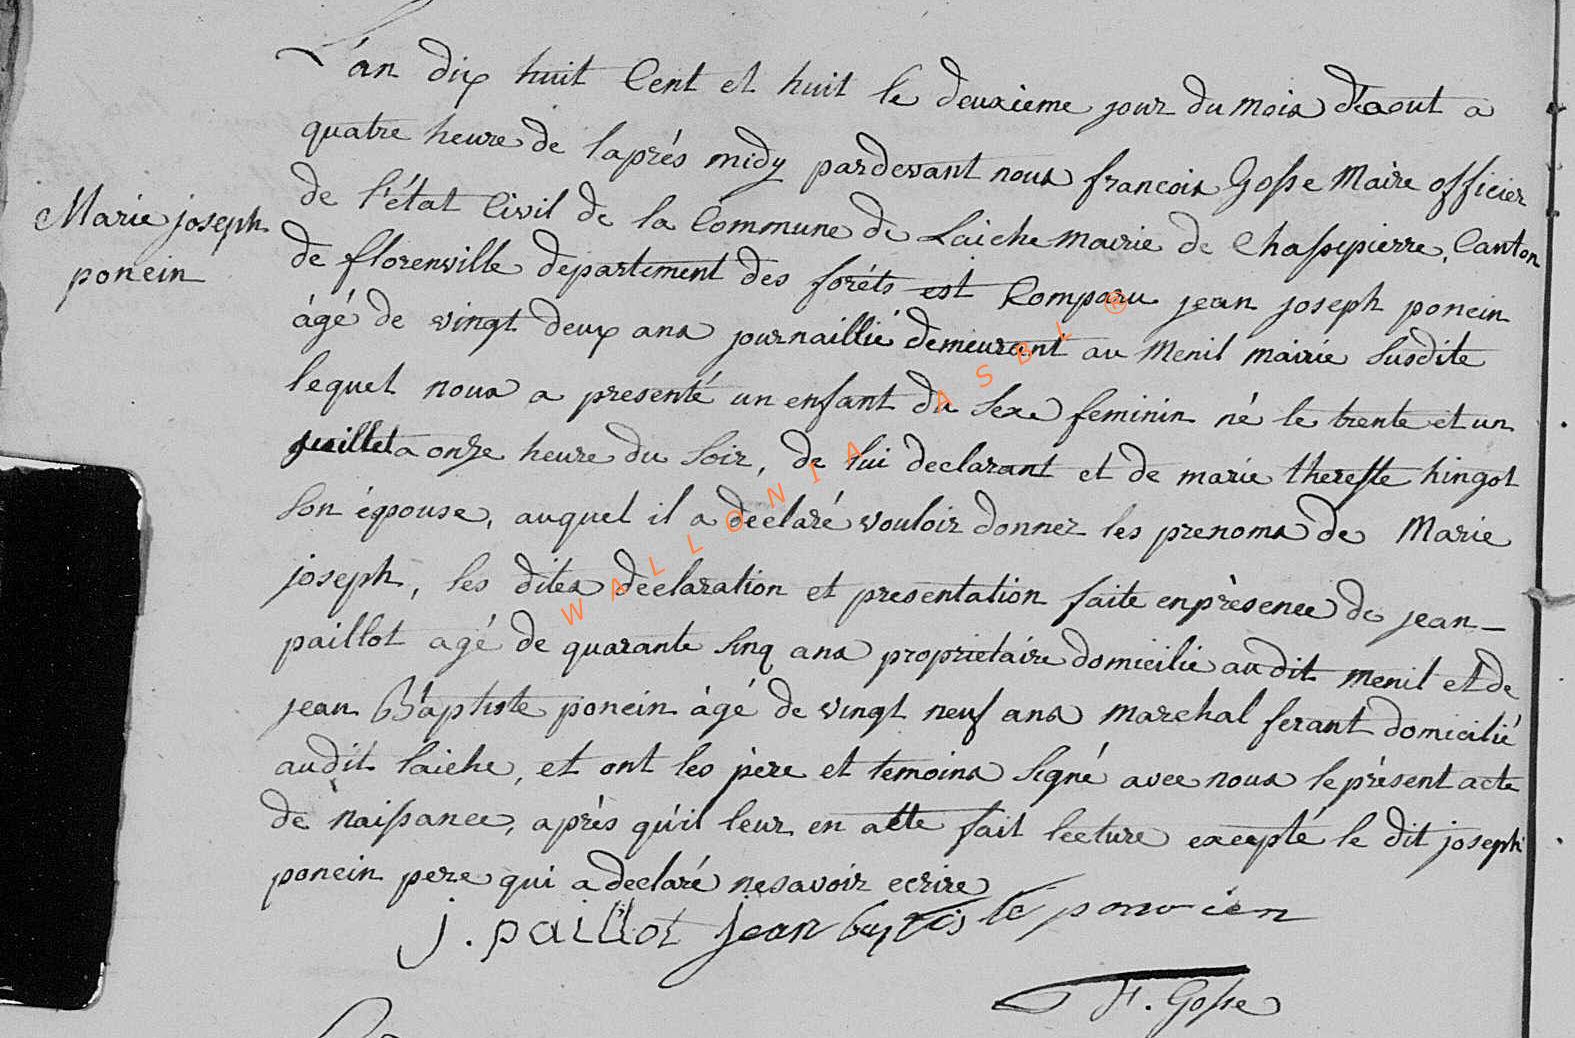 L'an dix huit Cent et huit le deuxieme jour du mois d'aout a
quatre heure de l'aprés midy pardevant nous francois Gosse Maire officier
de l'état Civil de la Commune de Laiche mairie de Chassepierre, Canton
Marie joseph
poncin
de florenville departement des foréts est Comparu jean joseph poncin
âgé de vingt deux ans journaillié demeurant au Menil mairie susdite
lequel nous a presenté un enfant du sexe feminin né le trente et un
juillet a onze heure du soir, de lui declarant et de marie theresse hingot
son épouse, auquel il a declaré vouloir donner les prenoms de Marie
joseph, les dites declaration et presentation faite en présence de jean
paillot agé de quarante sinq ans proprietaire domicilié audit menil et de
jean Baptiste poncin âgé de vingt neuf ans marchal ferant domicilié
audit laiche, et ont les père et temoins signé avec nous le présent acte
de naissance, après qu'il leur en atte fait lecture excepté le dit joseph
poncin pere qui a declaré ne savoir ecrire
j. paillot jean baptiste poncien
F. Gosse
WALLONIA ASBL ®